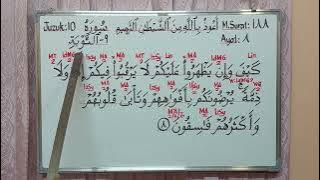 Juzuk:10 سُورَةُ أَعُوذُ بِاللَّهِ مِنَ الشَّيْطَٰنِ الرَّجِيمِ M.Surat: ١٨٨
٩-التَّوْبَة Ayat: ٨
كَيْفَ وَإِن يَظْهَرُوا۟ عَلَيْكُمْ لَا يَرْقُبُوا۟ فِيكُمْ إِلًّا وَلَا
ذِمَّةً يُرْضُونَكُم بِأَفْوَٰهِهِمْ وَتَأْبَىٰ قُلُوبُهُمْ
وَأَكْثَرُهُمْ فَٰسِقُونَ ٨